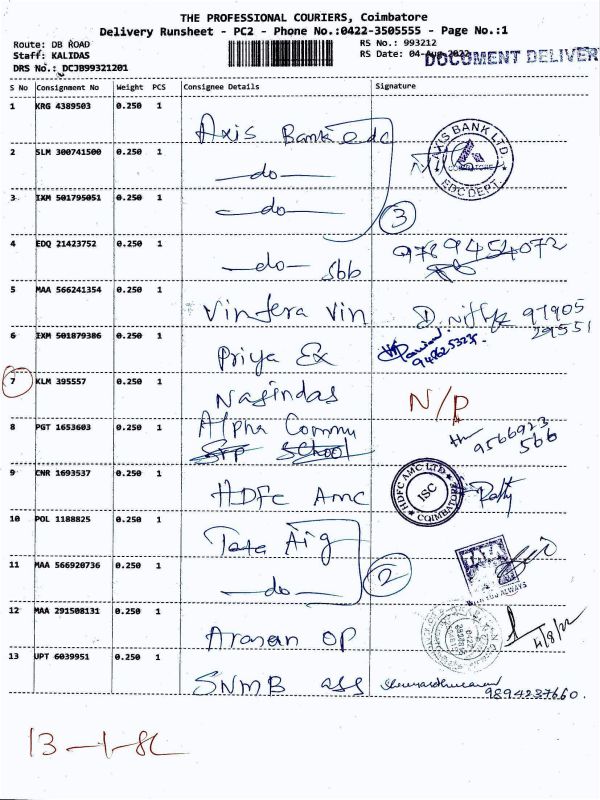 THE PROFESSIONAL COURIERS, Coimbatore
Delivery Runsheet - PC2 - Phone No.:0422-3505555 - Page No.:1
Route: DB ROAD RS No.: 993212
Staff: KALIDAS RS Date: 04-Aug-2022 DOCUMENT DELIVER
DRS No.: DCJB99321201
S No Consignment No Weight PCS Consignee Details Signature
1 KRG 4389503 0.250 1 Axis Bank edc
AXIS BANK LTD. COIMBATORE EDC DEPT.
2 SLM 300741500 0.250 1 -do-
3 IXM 501795051 0.250 1 -do- 3
4 EDQ 21423752 0.250 1 -do- sbb 9789454072
5 MAA 566241354 0.250 1 Vinfera Vin 97905
29551
6 IXM 501879386 0.250 1 Priya Ex
7 KLM 395557 0.250 1 Nasindas N/P
8 PGT 1653603 0.250 1 Alpha Commu 9566923
566
School
9 CNR 1693537 0.250 1 HDFC AMC
HDFC AMC LTD ISC COIMBATORE
10 POL 1188825 0.250 1 Tata Aig
11 MAA 566920736 0.250 1 -do- 2
WITH YOU ALWAYS
12 MAA 291508131 0.250 1 Aranan OP 4/8/22
13 UPT 6039951 0.250 1 SNMB ass 9894237660.
13-1-